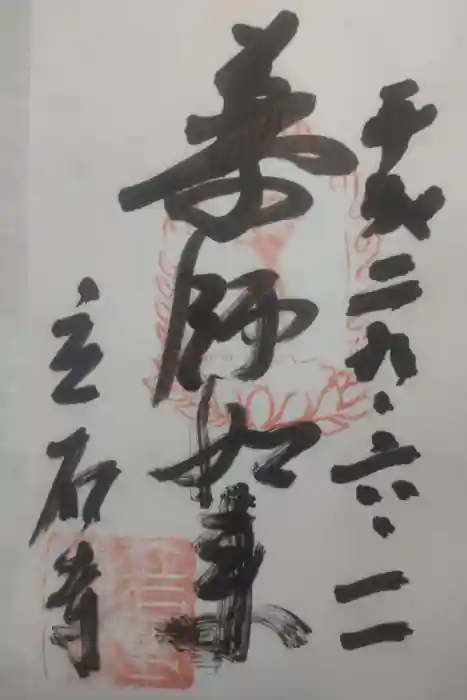 平成二九.六.二
薬師如来
立石寺